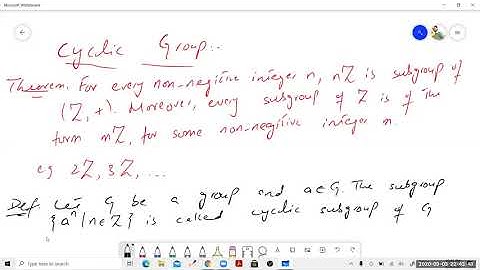 Microsoft Whiteboard
Cyclic Group:-
Theorem. For every non-negitive integer n, nZ is subgroup of
(Z, +). Moreover, every subgroup of Z is of the
form nZ, for some non-negitive integer n.
eg 2Z, 3Z, ...
Def. Let G be a group and a∈G. The subgroup
{a^n | n∈Z} is called cyclic subgroup of G
Type here to search